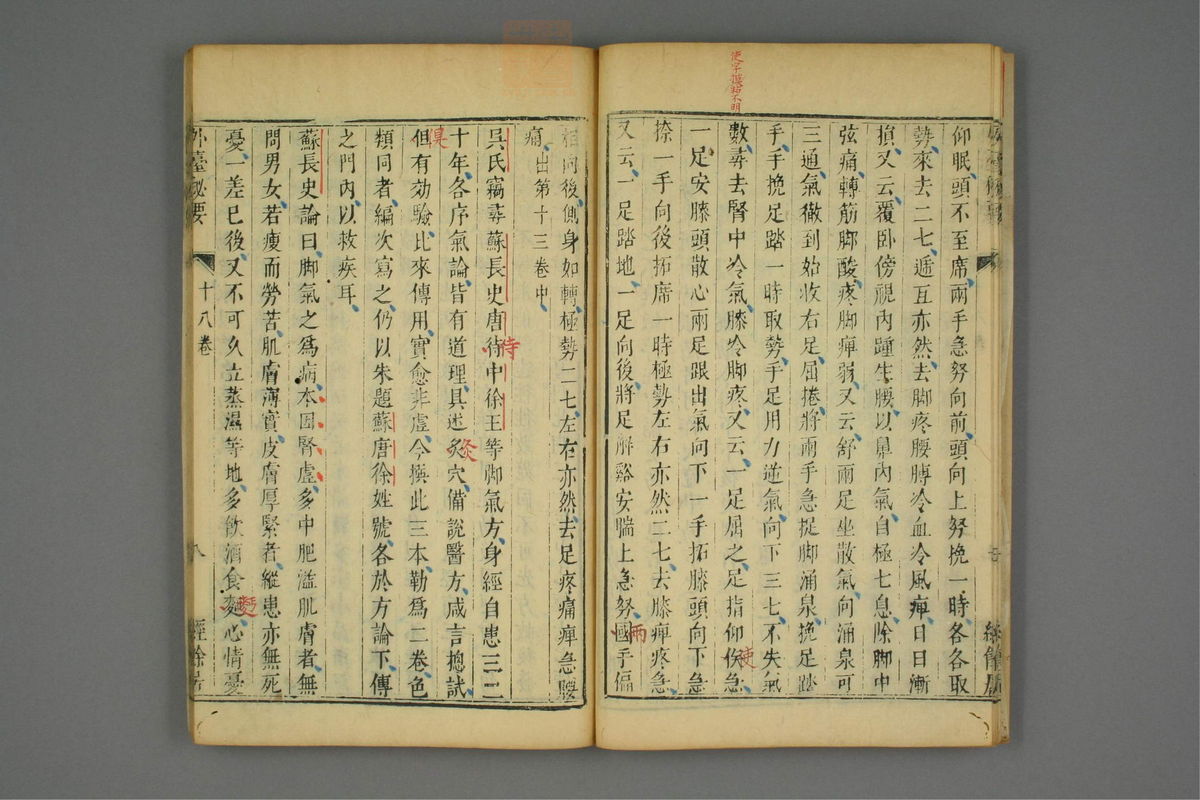 使字模點不明
仰眠頭不至席兩手急努向前頭向上努挽一時各各取
勢來去二七遞互亦然去脚疼腰膊冷血冷風痺日日漸
損又云覆卧傍視內踵生腰以鼻內氣自極七息除脚中
弦痛轉筋脚酸疼脚痺弱又云舒兩足坐散氣向涌泉可
三通氣徹到始收右足屈捲將兩手急捉脚涌泉挽足踏
手手挽足踏一時取勢手足用力逆氣向下三七不失氣
數尋去腎中冷氣膝冷脚疼又云一足屈之足指仰使急
一足安膝頭散心兩足跟出氣向下一手拓膝頭向下急
捺一手向後拓席一時極勢左右亦然二七去膝痺疼急
又云一足踏地一足向後將足解谿安腨上急努兩手偏
相向後側身如轉極勢二七左右亦然去足疼痛痺急腰
痛出第十三卷中
吳氏竊尋蘇長史唐侍中徐王等脚氣方身經自患三二
十年各序氣論皆有道理具述灸穴備說醫方咸言總試
但有効驗比來傳用實愈非虛今撰此三本勒爲二卷色
類同者編次寫之仍以朱題蘇唐徐姓號各於方論下傳
之門內以救疾耳
蘇長史論曰脚氣之爲病本因腎虛多中肥溢肌膚者無
問男女若瘦而勞苦肌膚薄實皮膚厚緊者縱患亦無死
憂一差已後又不可久立蒸濕等地多飲酒食麵心情憂
外臺秘要 十八卷 八 經餘居